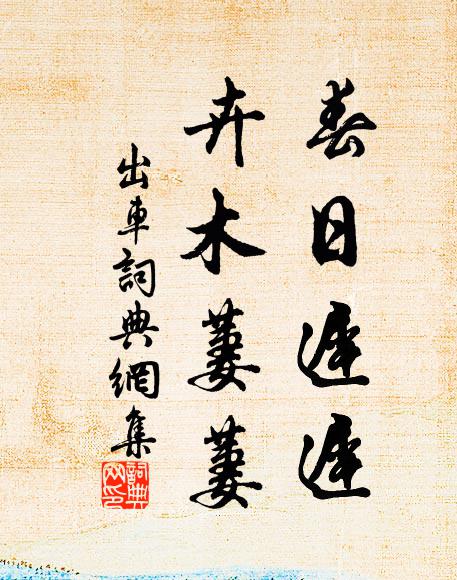 春日遲遲
卉木萋萋
出車詞典網集
詞典
网印